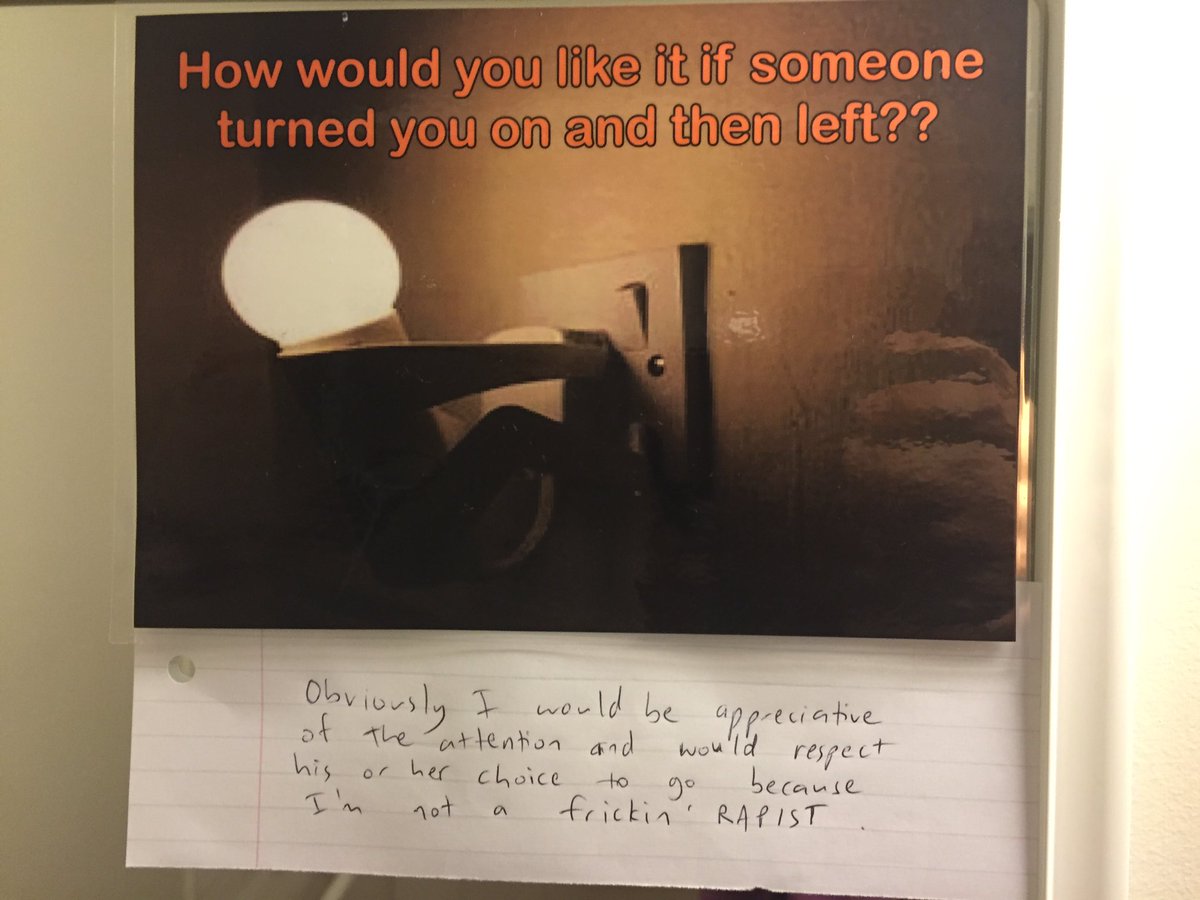 How would you like it if someone
turned you on and then left??
Obviously I would be appreciative
of the attention and would respect
his or her choice to go because
I'm not a frickin' RAPIST.